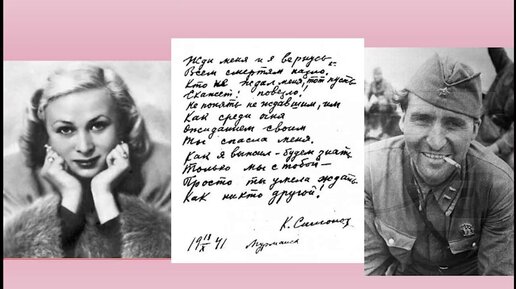 Жди меня и я вернусь
Всем смертям назло.
Кто не ждал меня, тот пусть
Скажет: повезло!
Не понять не ждавшим, им
Как среди огня
Ожиданием своим
Ты спасла меня.
Как я выжил - будем знать
Только мы с тобой -
Просто ты умела ждать
Как никто другой!
К. Симонов
19 18/X 41 Мурманск